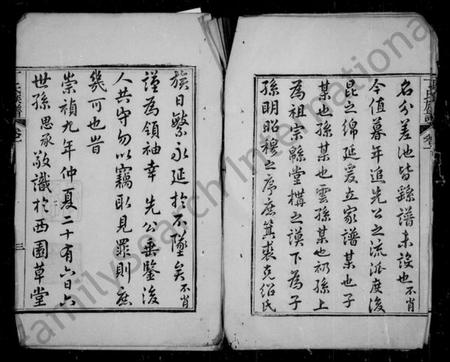 名分差池皆繇譜未設也不肖
今值暮年追先公之流派度後
昆之綿延爰立家譜某也子
某也孫某也雲孫某也礽孫上
為祖宗緜堂搆之謨下為子
孫明昭穆之序庶箕裘克紹氏
族日繁永延於不墜矣不肖
謹為領袖幸先公垂鑒後
人共守勿以竊取見罪則庶
幾可也昔
崇禎九年仲夏二十有六日六
世孫思承敬識於西園草堂
三
氏族譜
卷
FamilySearch International